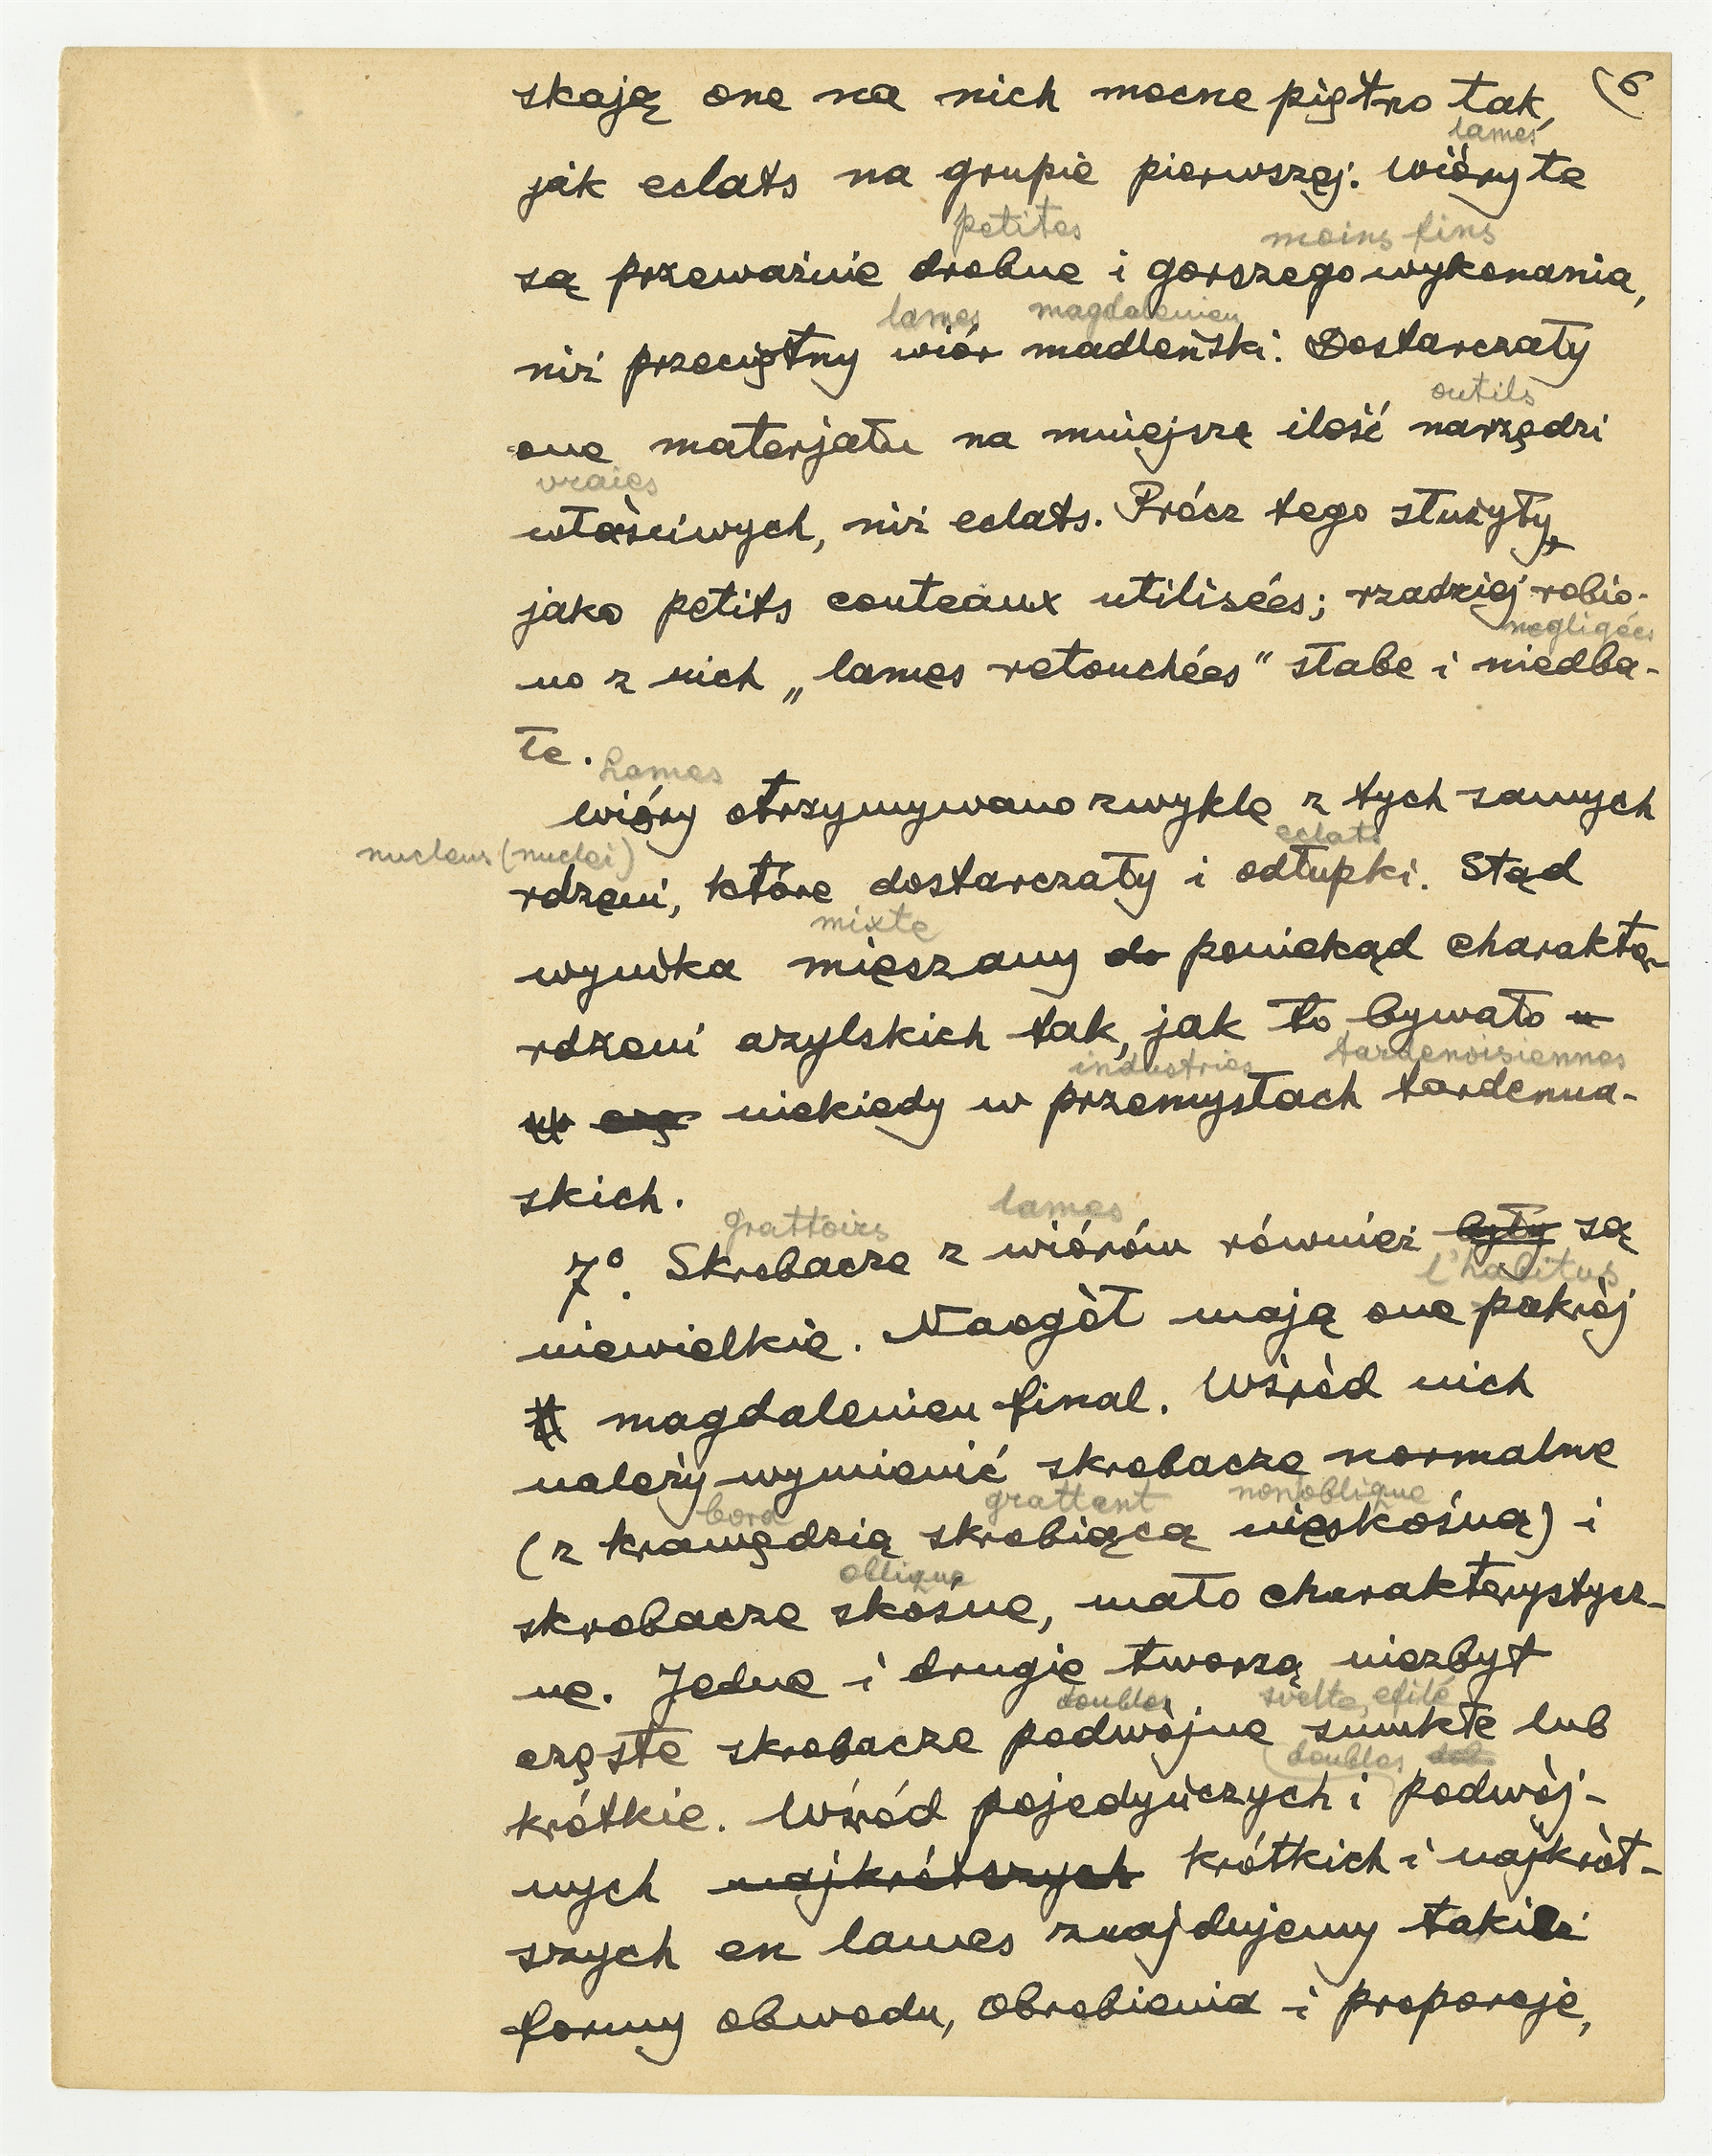 skają one na nich mocne piętno tak, (6
lames
jak eclats na grupie pierwszej. Wióry te
petites moins fins
są przeważnie drobne i gorszego wykonania,
lames magdalenien
niż przeciętny wiór madleński. Dostarczały
outils
one materjału na mniejszą ilość narzędzi
vraies
właściwych, niż eclats. Prócz tego służyły
jako petits couteaux utilisées; rzadziej robio-
negligées
no z nich „lames retouchées" słabe i niedba-
łe.
Lames
Wióry otrzymywano zwykle z tych samych
nucleus (nuclei) eclats
rdzeni, które dostarczały i odłupki. Stąd
mixte
wynika mieszany do poniekąd charakter
rdzeni azylskich tak, jak to bywało w
industries tardenoisiennes
niekiedy w przemysłach tardenua-
skich.
grattoirs lames
7º. Skrobacze z wiórów również były są
l'habitus
niewielkie. Naogół mają one pokrój
magdalenien final. Wśród nich
należy wymienić skrobacze normalne
bord grattant non oblique
(z krawędzią skrobiącą nieskośną) i
oblique
skrobacze skośne, mało charakterystycz-
ne. Jedne i drugie tworzą niezbyt
doubles svelte, efilé
częste skrobacze podwójne smukłe lub
doubles
krótkie. Wśród pojedyńczych i podwój-
nych najkrótszych krótkich i najkrót-
szych en lames znajdujemy takież
formy obwodu, obrobienia i proporcje,